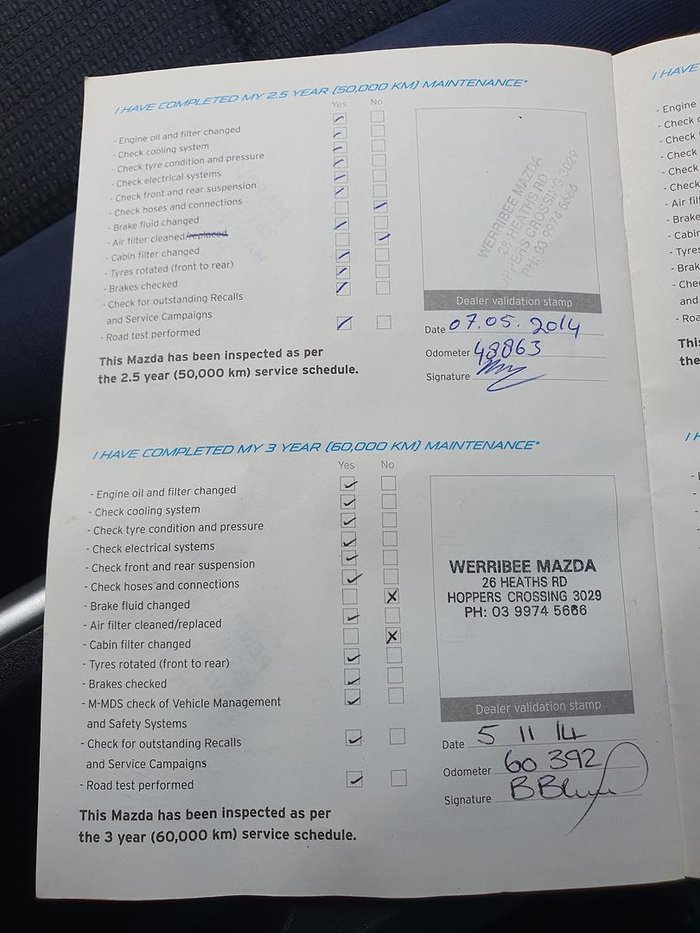 I HAVE COMPLETED MY 2.5 YEAR (50,000 KM) MAINTENANCE*
Yes No
- Engine oil and filter changed
- Check cooling system
- Check tyre condition and pressure
- Check electrical systems
- Check front and rear suspension
- Check hoses and connections
- Brake fluid changed
- Air filter cleaned/replaced
- Cabin filter changed
- Tyres rotated (front to rear)
- Brakes checked
- Check for outstanding Recalls
and Service Campaigns
- Road test performed
This Mazda has been inspected as per
the 2.5 year (50,000 km) service schedule.
WERRIBEE MAZDA
26 HEATHS RD
HOPPERS CROSSING 3029
PH: 03 9974 5666
Dealer validation stamp
Date 07.05.2014
Odometer 48863
Signature
I HAVE COMPLETED MY 3 YEAR (60,000 KM) MAINTENANCE*
Yes No
- Engine oil and filter changed
- Check cooling system
- Check tyre condition and pressure
- Check electrical systems
- Check front and rear suspension
- Check hoses and connections
- Brake fluid changed
- Air filter cleaned/replaced
- Cabin filter changed
- Tyres rotated (front to rear)
- Brakes checked
- M-MDS check of Vehicle Management
and Safety Systems
- Check for outstanding Recalls
and Service Campaigns
- Road test performed
This Mazda has been inspected as per
the 3 year (60,000 km) service schedule.
WERRIBEE MAZDA
26 HEATHS RD
HOPPERS CROSSING 3029
PH: 03 9974 5666
Dealer validation stamp
Date 5 11 14
Odometer 60 392
Signature
I HAVE
- Engine
- Check
- Check
- Check
- Check
- Air filt
- Brake
- Cabin
- Tyres
- Brak
- Che
and
- Roa
This
the